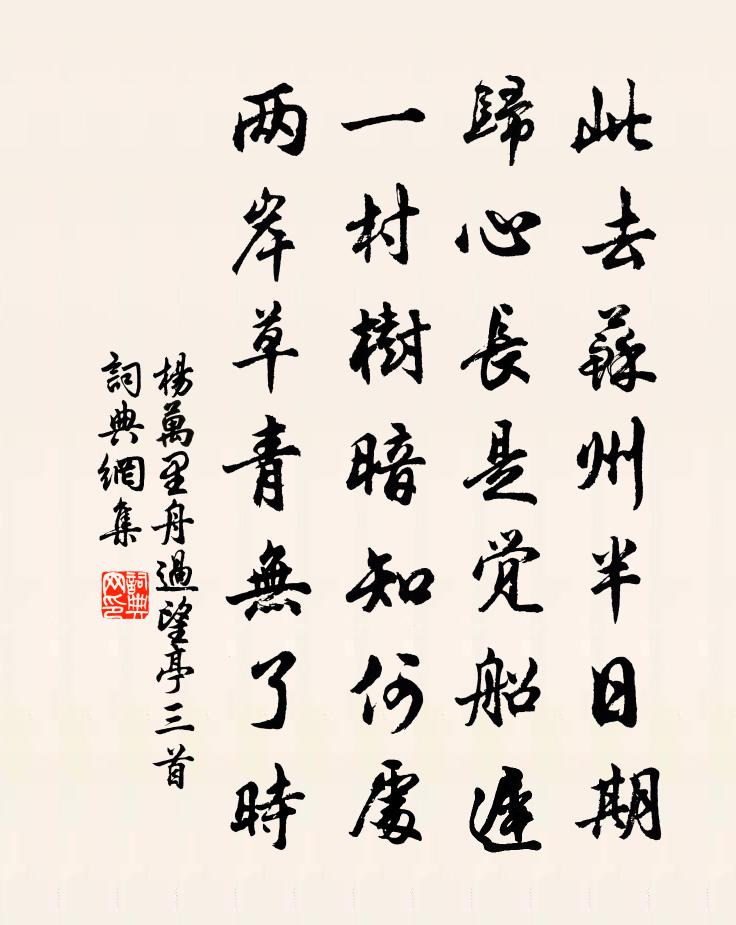 此去蘇州半日期
歸心長是覺船遲
一村樹暗知何處
两岸草青無了時
楊萬里舟過望亭三首
詞典網集
詞典网印